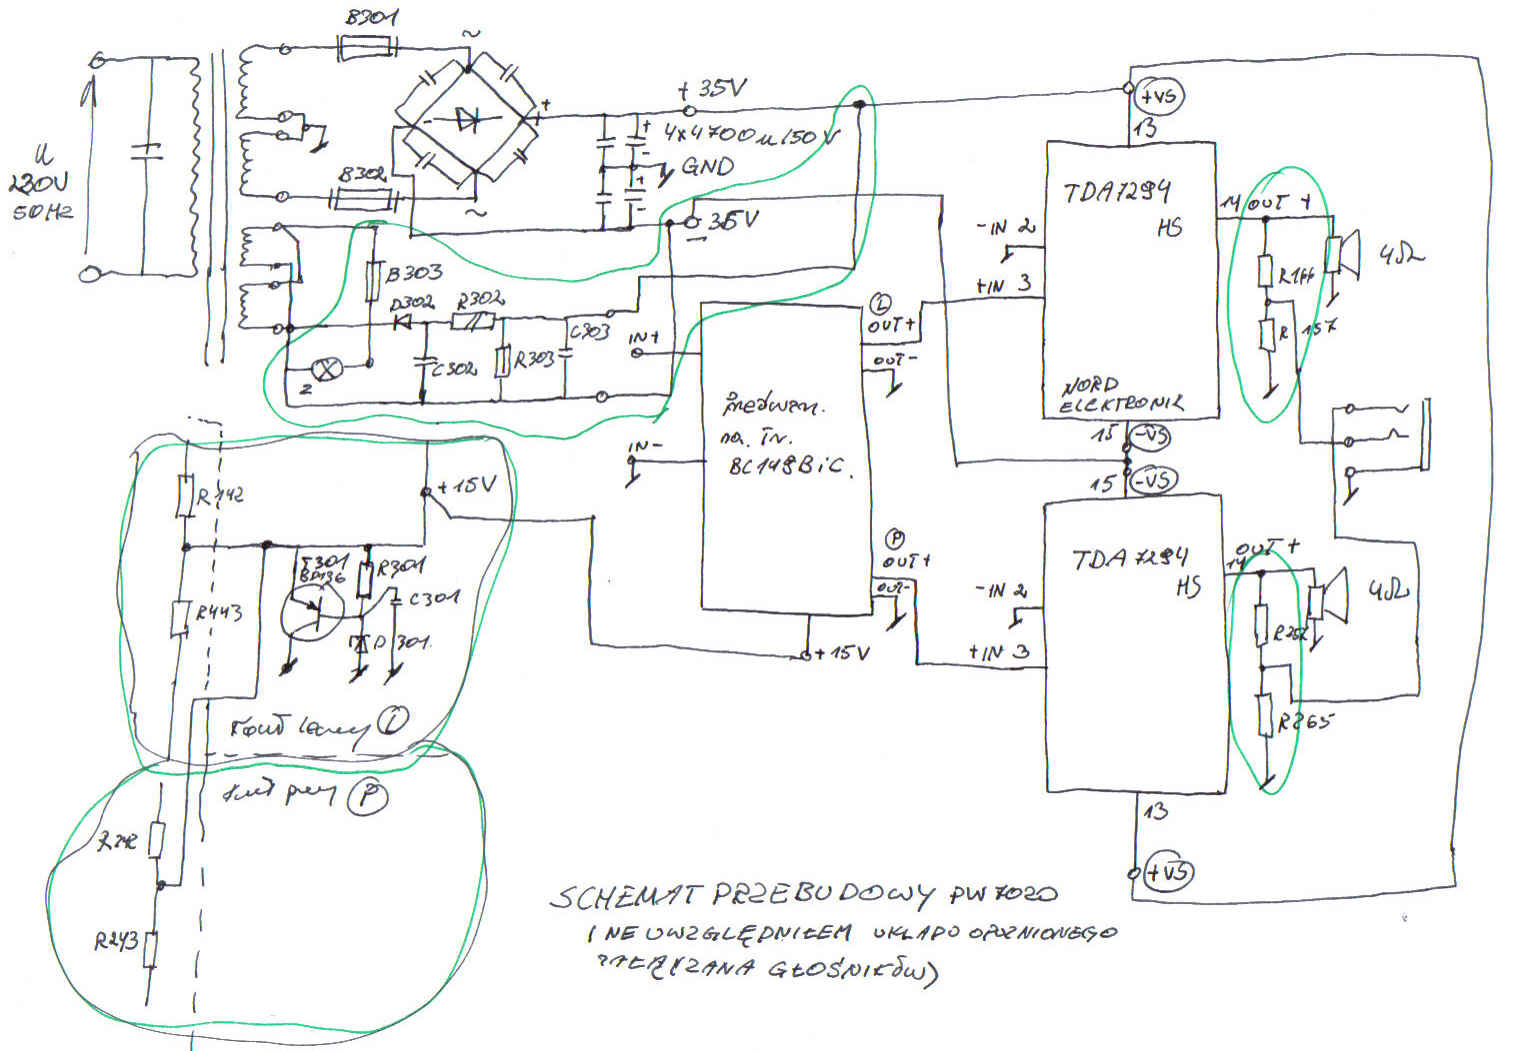 B301
~
U
220V
50Hz
+
+ 35V
4x4700u/50V
+
-
GND
+
-
B302
~
- 35V
B303
D302
R302
C303
C302
R303
Z
IN+
IN-
Przedwzm.
na. Tr.
BC149BiC.
L
OUT+
OUT-
P
OUT+
OUT-
+15V
+VS
13
TDA7294
HS
-IN 2
+IN 3
NORD
ELEKTRONIK
15
-VS
14 OUT +
R166
R 157
4Ω
15
-VS
TDA7294
HS
-IN 2
+IN 3
OUT +
14
R257
R265
4Ω
13
+VS
R142
+15V
R443
T301
BD136
R301
C301
D301
Kanał lewy L
P
R242
R243
SCHEMAT PRZEBUDOWY PW7020
(NE UWZGLĘDNIŁEM UKŁADU OPÓŹNIONEGO
ZAŁĄCZANA GŁOŚNIKÓW)